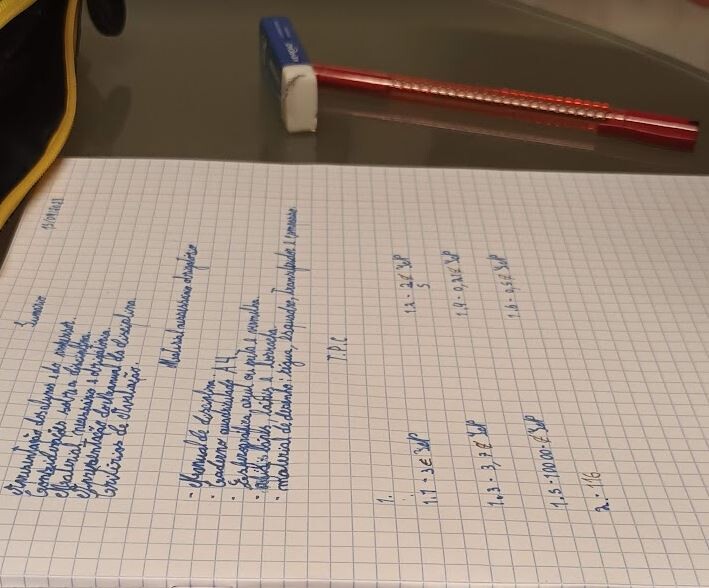 13/09/2021
Sumário
Apresentação dos alunos e do professor.
Considerações sobre a disciplina.
Material necessário e obrigatório.
Apresentação do Manual da disciplina
Critérios de avaliação.
Material necessário obrigatório
· Manual de disciplina
· Caderno quadriculado A4
· Esferográfica, azul ou preta e vermelha
· lápis e borracha
· material de desenho: régua, esquadro, transferidor e compasso.
T.P.C
1.
1.1 - 3€ 3dP
1.2 - 2€ 3dP
5
1.3 - 3,7€ 3dP
1.4 - 0,21€ 3dP
1.5 - 100.00 € 3dP
1.6 - 0,5€ 3dP
2. 116